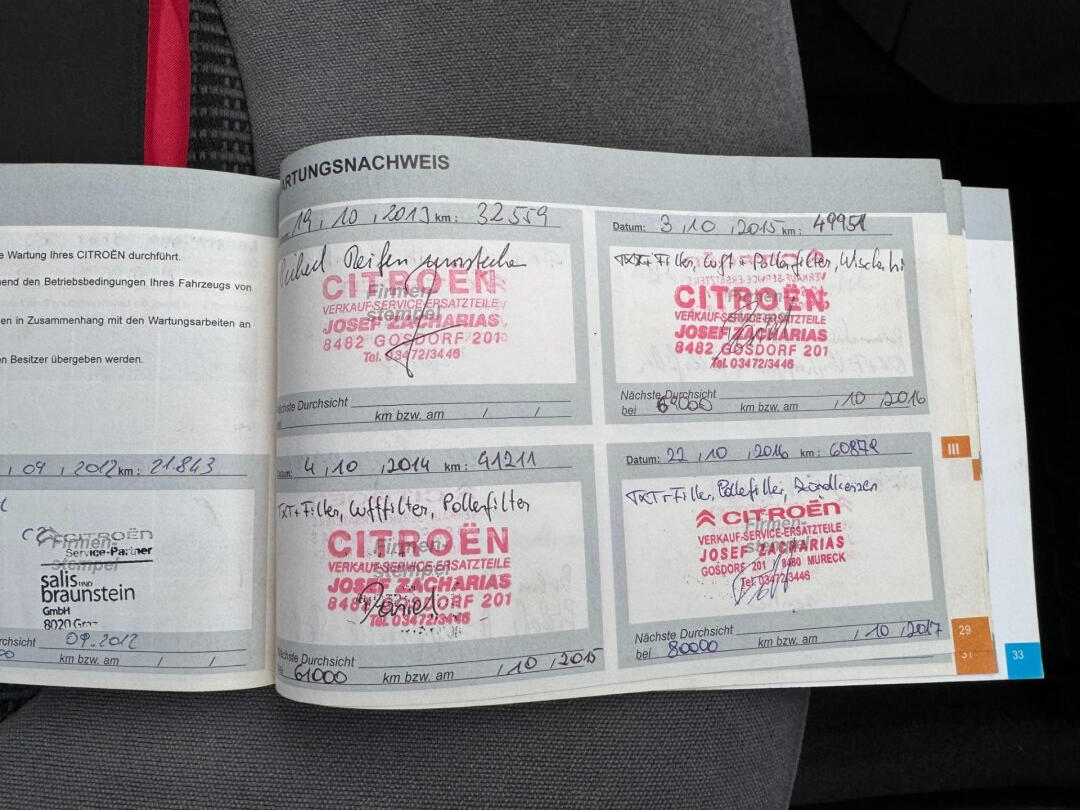 e Wartung Ihres CITROËN durchführt.
end den Betriebsbedingungen Ihres Fahrzeugs von
en in Zusammenhang mit den Wartungsarbeiten an
n Besitzer übergeben werden.
, 09 , 2012 km: 21.843
CITROËN
Firmen-
Service-Partner
stempel
salis UND
braunstein
GmbH
8020
09.2012
km bzw. am / /
ARTUNGSNACHWEIS
19 , 10 , 2013 km: 32559
Reifen
CITROËN
Firmen-
VERKAUF-SERVICE-ERSATZTEILE
stempel
JOSEF ZACHARIAS
8482 GOSDORF 201
Tel. 03472/3446
Nächste Durchsicht
km bzw. am / /
4 , 10 , 2014 km: 41211
Filter, Luftfilter, Pollenfilter
CITROËN
Firmen-
VERKAUF-SERVICE-ERSATZTEILE
stempel
JOSEF ZACHARIAS
8482 GOSDORF 201
Tel. 03472/3446
Nächste Durchsicht
61000 km bzw. am , 10 , 2015
Datum: 3 , 10 , 2015 km: 49951
Filter, Luft + Pollenfilter,
CITROËN
Firmen-
VERKAUF-SERVICE-ERSATZTEILE
stempel
JOSEF ZACHARIAS
8482 GOSDORF 201
Tel. 03472/3446
Nächste Durchsicht
bei km bzw. am , 10 , 2016
Datum: 22 , 10 , 2016 km: 60879
Filter, Zündkerzen
CITROËN
Firmen-
VERKAUF-SERVICE-ERSATZTEILE
stempel
JOSEF ZACHARIAS
GOSDORF 201 8480 MURECK
Tel. 03472/3446
Nächste Durchsicht
bei 80000 km bzw. am , 10 , 2017
III
29
31
33